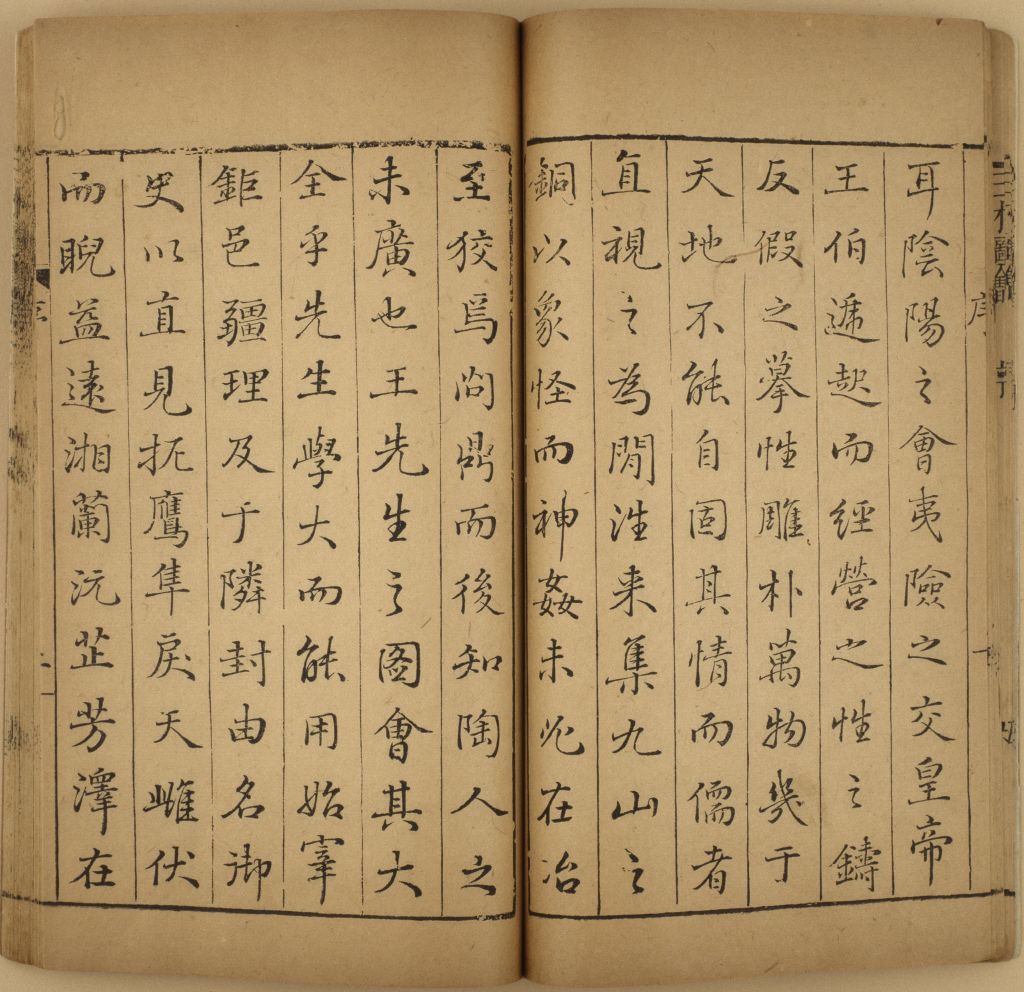 耳陰陽之會夷險之交皇帝
王伯遞起而經營之性之鑄
反假之摹性雕朴萬物幾于
天地不能自固其情而儒者
直視之為閒漟来集九山之
銅以象怪而神姦未兆在冶
至狡焉問鼎而後知陶人之
未廣也王先生之圖會其大
全乎先生學大而能用始宰
鉅邑疆理及于隣封由名御
史以直見扼鷹隼戾天雌伏
而睨益遠湘蘭沅芷芳澤在
序